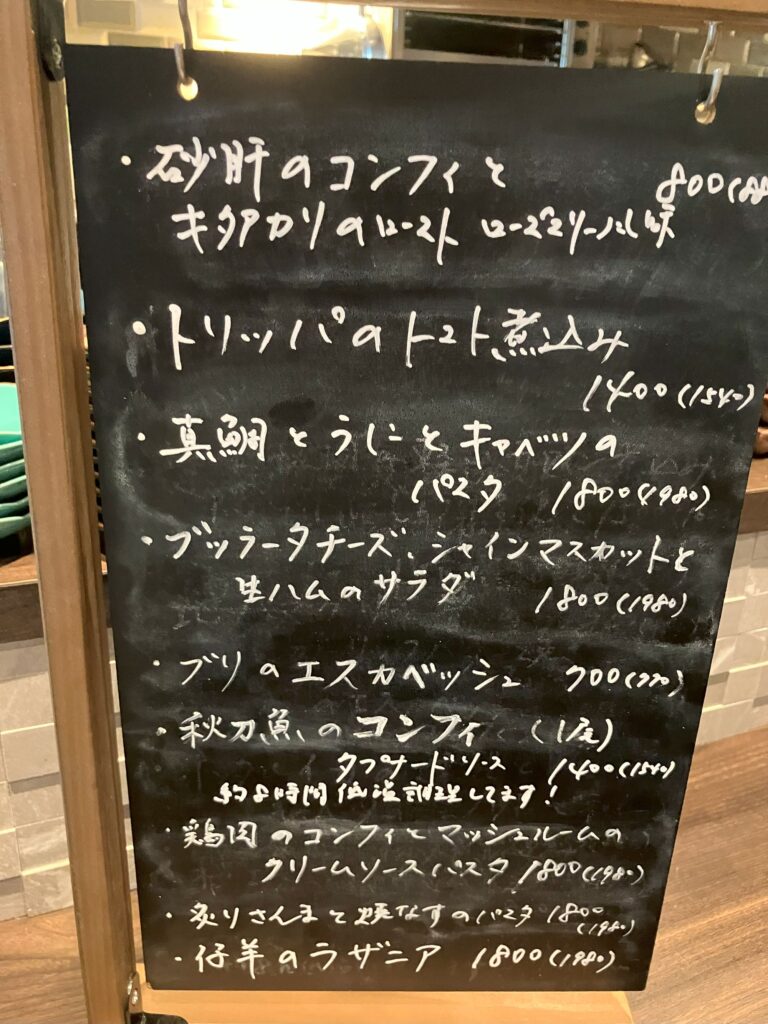 ・砂肝のコンフィと 800(88
キタアカリのロースト ローズマリー風味
・トリッパのトマト煮込み
1400(1540)
・真鯛とうにとキャベツの
パスタ 1800(1980)
・ブッラータチーズ、シャインマスカットと
生ハムのサラダ 1800(1980)
・ブリのエスカベッシュ 700(770)
・秋刀魚のコンフィ (1尾)
タプナードソース 1400(1540)
約8時間低温調理してます!
・鶏肉のコンフィとマッシュルームの
クリームソースパスタ 1800(1980)
・炙りさんまと焼なすのパスタ 1800
(1980)
・仔羊のラザニア 1800(1980)